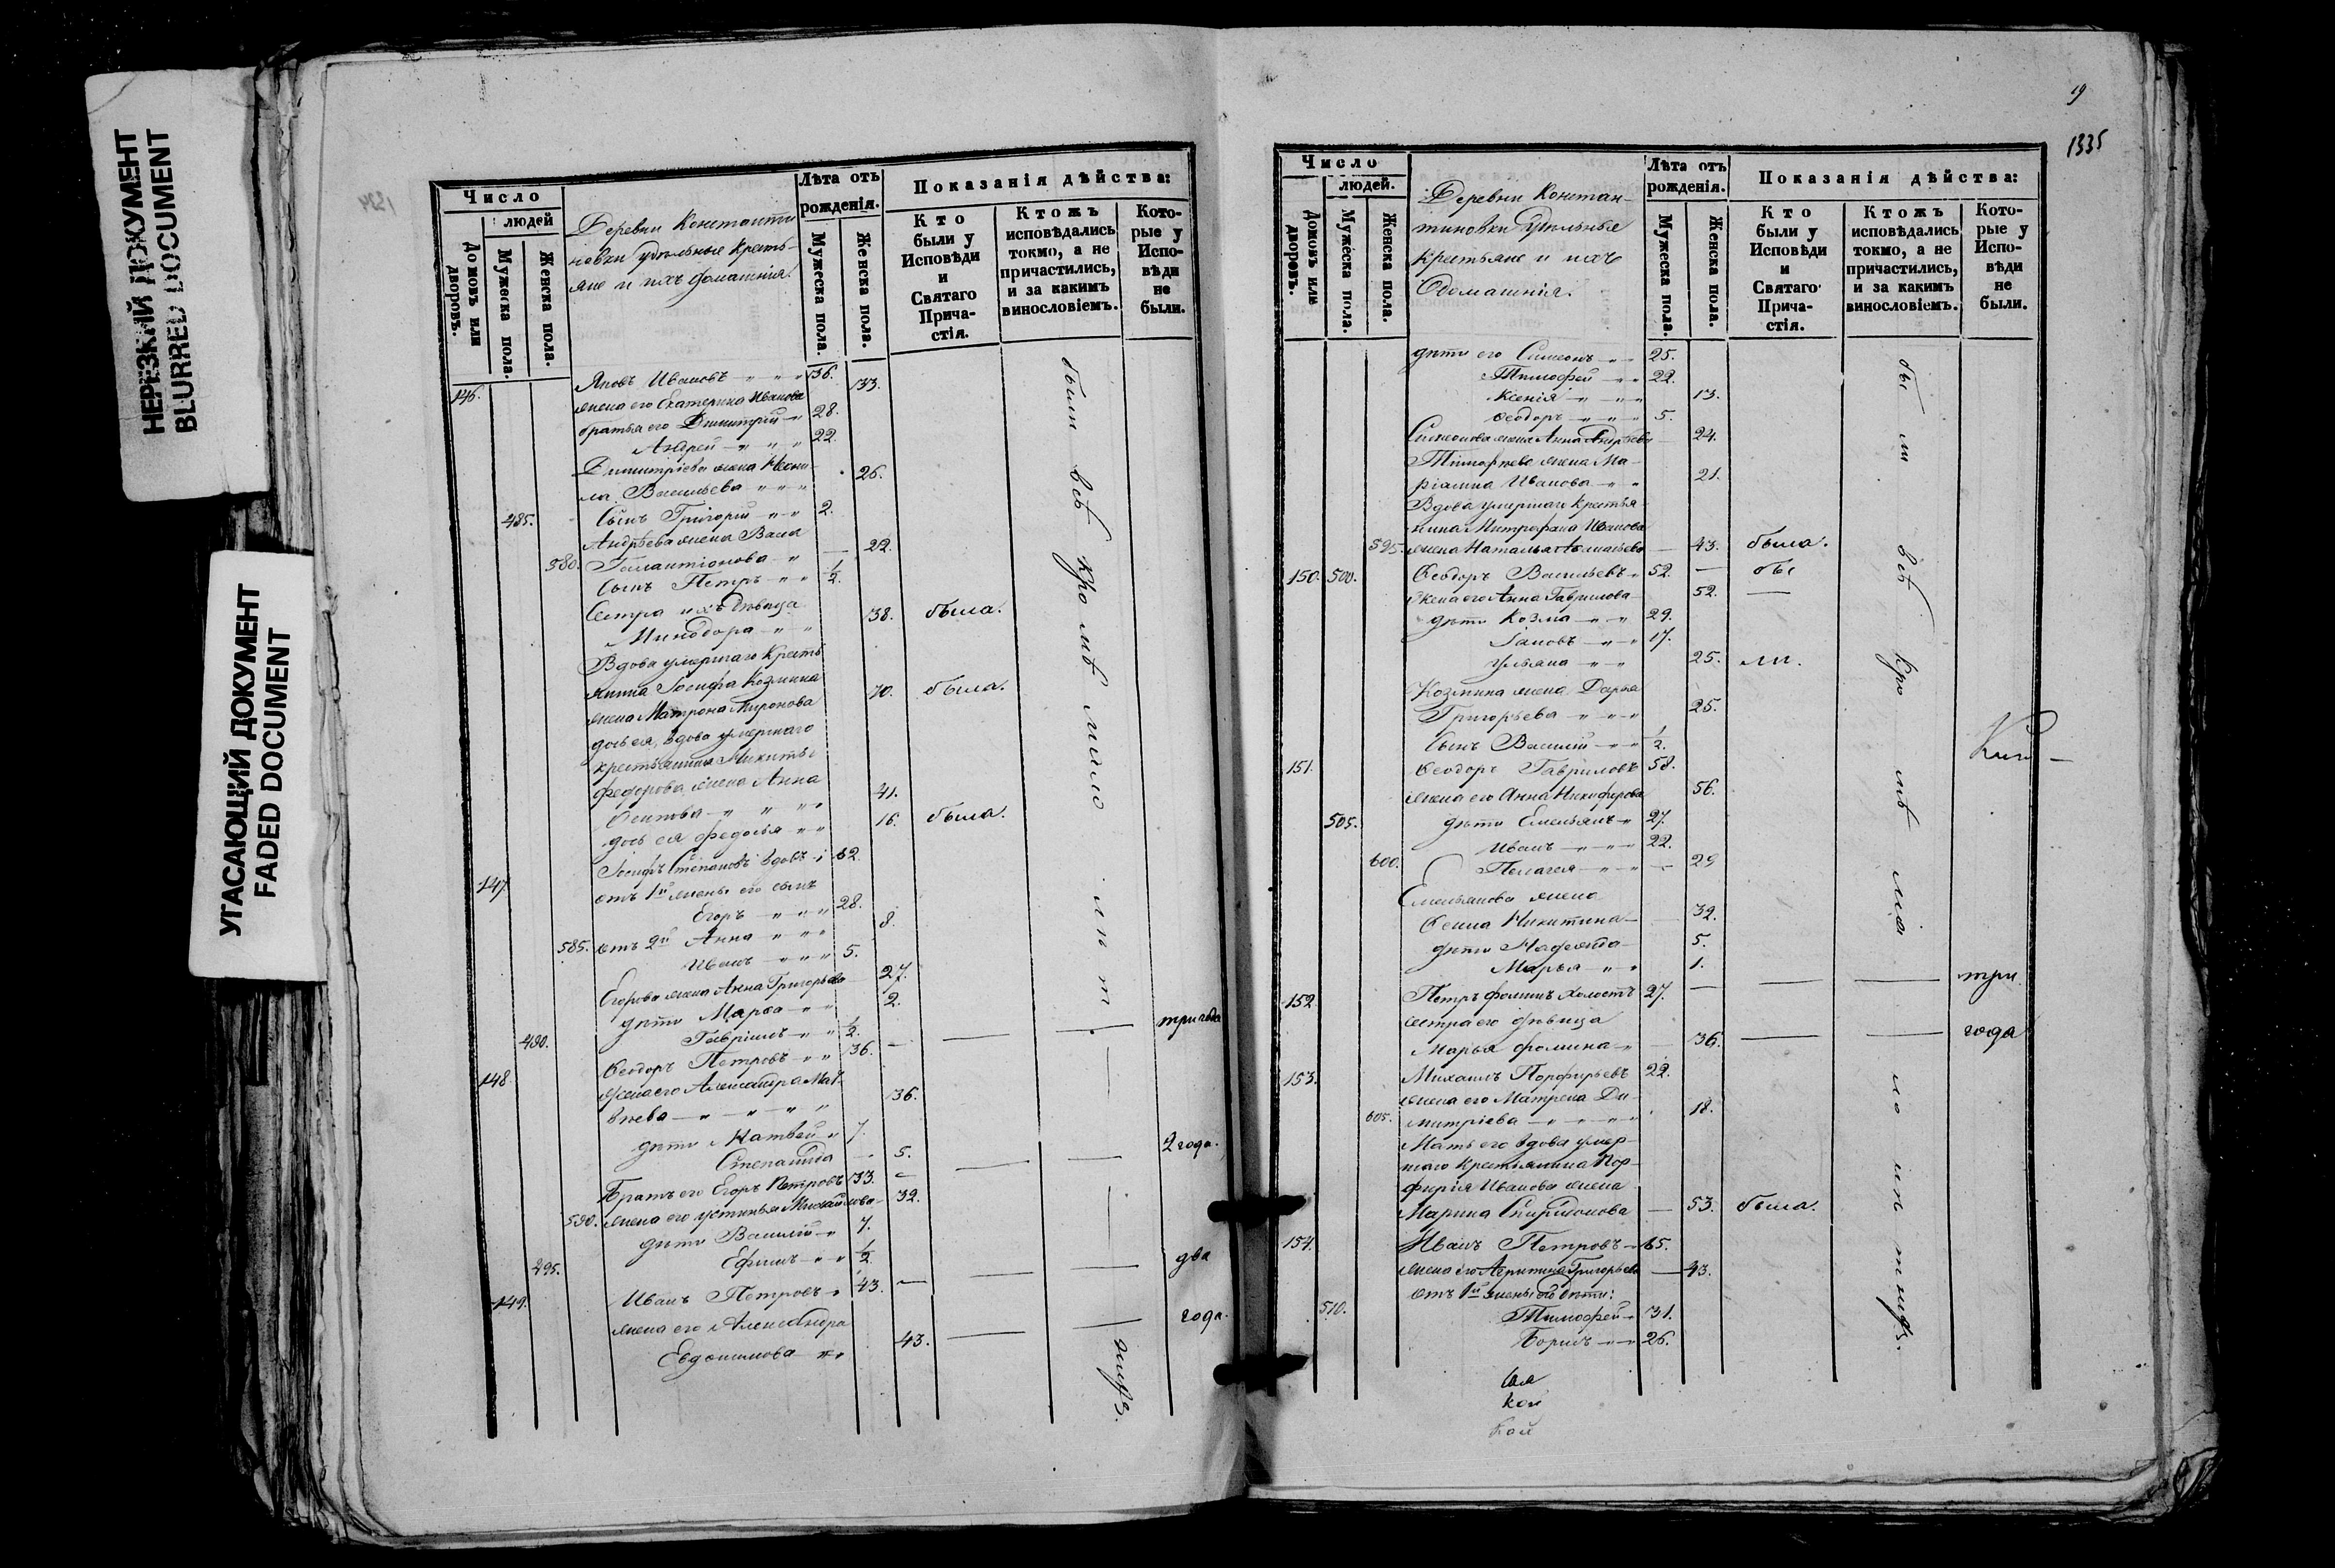 НЕРЕЗКИЙ ДОКУМЕНТ
BLURRED DOCUMENT
УГАСАЮЩИЙ ДОКУМЕНТ
FADED DOCUMENT
Число
людей
Домовъ или дворовъ.
Мужеска пола.
Женска пола.
Деревни Константи
новки удѣльные кресть-
яне и ихъ домашнія.
Лѣта отъ рожденія.
Мужеска пола.
Женска пола.
Показанія дѣйства:
Кто были у Исповѣди и Святаго Прича-стія.
Ктожъ исповѣдались токмо, а не причастились, и за какимъ винословіемъ.
Кото-рые у Испо-вѣди не были.
146. Яковъ Ивановъ 36.
жена его Екатерина Иванова 33.
братья его Димитрій 28.
Андрей 22.
Димитріева жена
Васильева 26.
485. Сынъ Григорій 2.
Андрѣева жена Васса
580. Галактіонова 22.
Сынъ Петръ 1/2.
Сестра ихъ дѣвица
Минодора 38. была.
Вдова умершаго кресть
янина Іосифа Козмина
жена Матрона Миронова 70. была.
дочь ея, вдова умершаго
крестьянина Никиты
Федорова жена Анна
Осипова 41.
дочь ея Федосья 16. была.
147. Іосифъ Степановъ вдовъ 62.
отъ 1й жены его сынъ
Егоръ 28.
585. отъ 2й Анна 8.
Иванъ 5.
Егорова жена Анна Григорьева 27.
дѣти Марѳа 2.
490. Гавріилъ 1/2.
148. Ѳеодоръ Петровъ 36. три года
жена его Александра Мат-
вѣева 36.
дѣти Матвей 7.
Степанида 5.
Братъ его Егоръ Петровъ 33. 2 года.
590. жена его Устинья Михайлова 32.
дѣти Василій 7.
495. Ефимъ 1/2.
149. Иванъ Петровъ 43. два
жена его Александра
Евдокимова 43. года.
были всѣ кромѣ мало лѣт.
19
1335
Число
людей.
Домовъ или дворовъ.
Мужеска пола.
Женска пола.
Деревни Констан-
тиновки Удѣльные
крестьяне и ихъ
домашнія.
Лѣта отъ рожденія.
Мужеска пола.
Женска пола.
Показанія дѣйства:
Кто были у Исповѣди и Святаго Прича-стія.
Ктожъ исповѣдались токмо, а не причастились, и за какимъ винословіемъ.
Кото-рые у Испо-вѣди не были.
дѣти его Симеонъ 25.
Тимофей 22.
Ксенія 13.
Ѳеодоръ 5.
Симеонова жена Анна Андрѣева 24.
Тимофѣева жена Ма-
ріанна Иванова 21.
Вдова умершаго крестья-
нина Митрофана Иванова
595. жена Наталья 43. была.
150. 500. Ѳеодоръ Васильевъ 52. бы
жена его Анна Гаврилова 52.
дѣти Козма 29.
Іаковъ 17.
Ульяна 25. ли.
Козмина жена Дарья
Григорьева 25.
Сынъ Василій 1/2.
151. Ѳеодоръ Гавриловъ 58.
жена его Анна Никифорова 56.
505. дѣти Емельянъ 27.
Иванъ 22.
600. Пелагея 29
Емельянова жена
Никитина 32.
дѣти 5.
Марья 1.
152. Петръ Фоминъ холостъ 27. три
сестра его дѣвица
Марья Фомина 36. года
153. Михаилъ Порфирьевъ 22.
жена его Матрена Ди-
605. митріева 18.
Мать его вдова умер-
шаго крестьянина Пор-
фирія Иванова жена
Марина Спиридонова 53. была.
154. Иванъ Петровъ 65.
жена его Григорьева 43.
отъ 1й жены дѣти:
510. Тимофей 31.
Борисъ 26.
бы ли всѣ кро мѣ ма ло лѣт